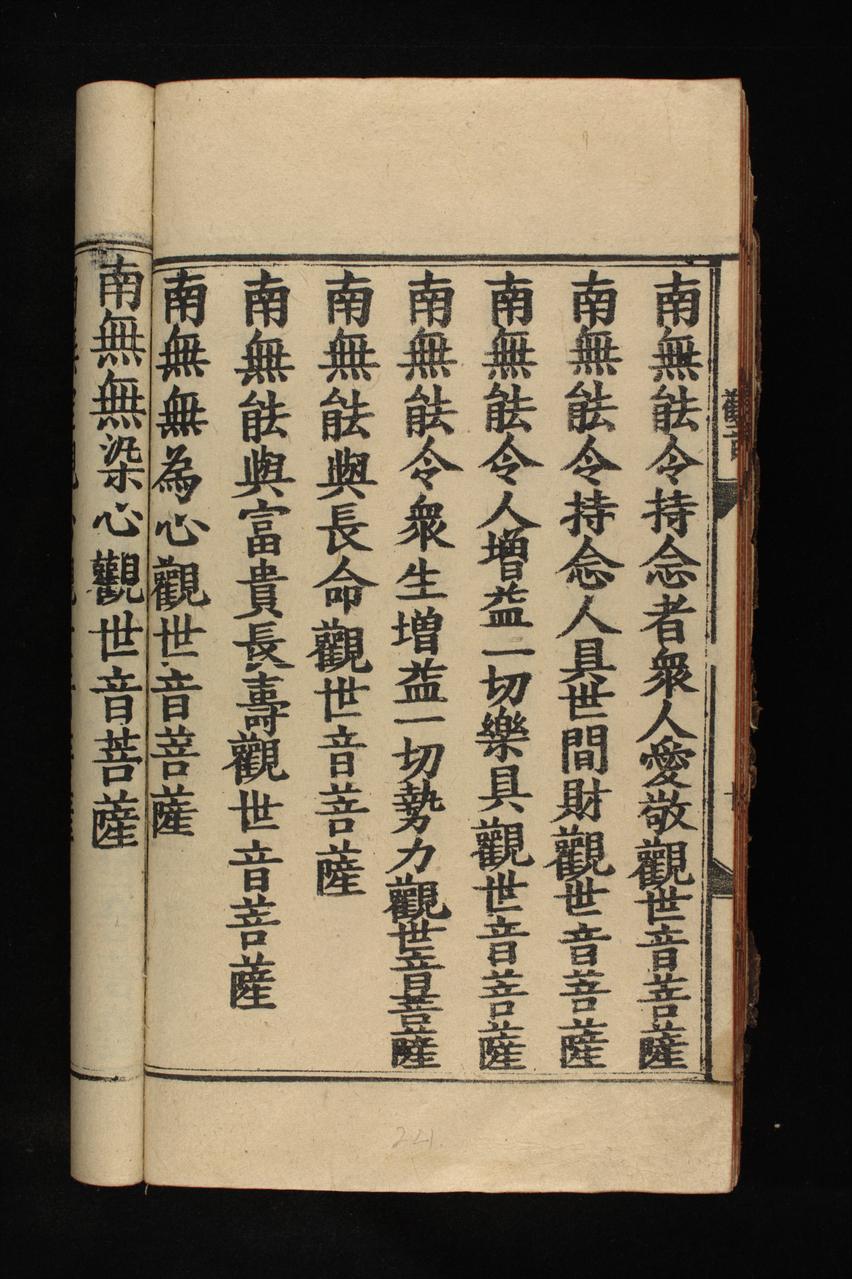 觀音
南無能令持念者衆人愛敬觀世音菩薩
南無能令持念人具世間財觀世音菩薩
南無能令人增益一切樂具觀世音菩薩
南無能令衆生增益一切勢力觀世音菩薩
南無能與長命觀世音菩薩
南無能與富貴長壽觀世音菩薩
南無無為心觀世音菩薩
南無無染心觀世音菩薩
241